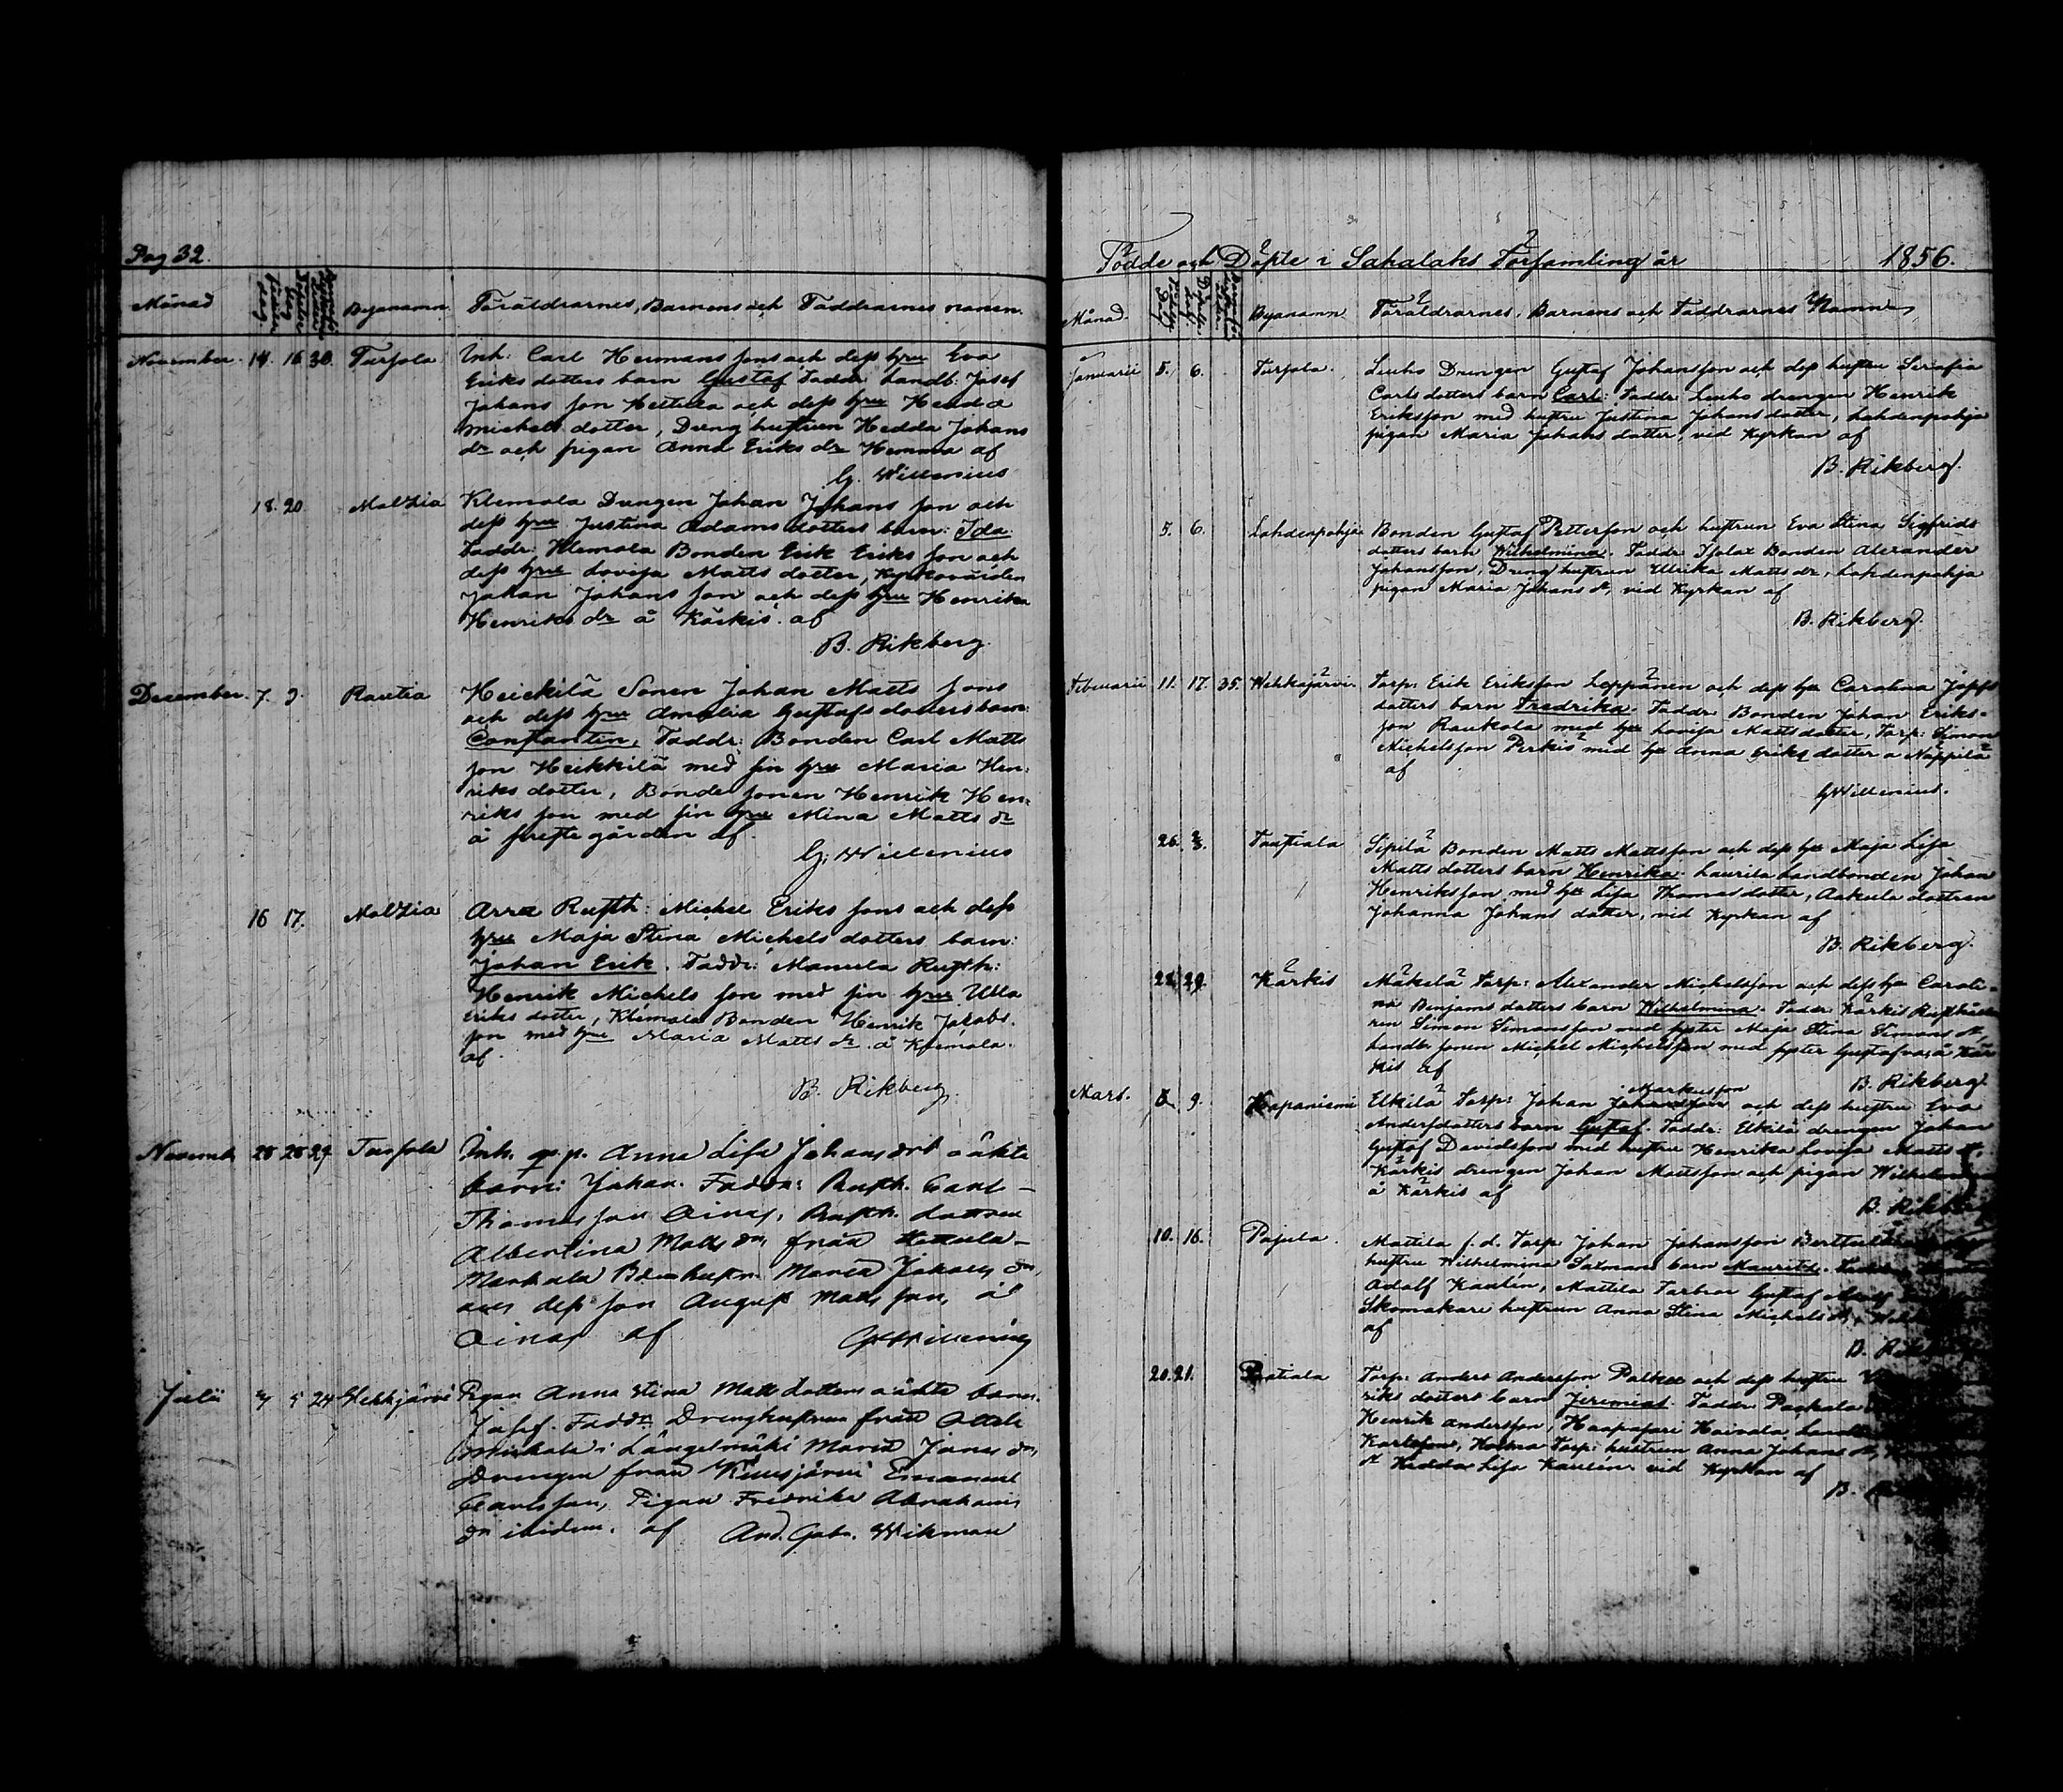 Pag 32.
Månad Byanamn Föräldrarnes, Barnens och Faddrarnes namn.
November. 14. 16 30. Turpola Inh: Carl Hermans sons och dess hru Eva
Eriks dotters barn Gustaf Faddr Landb: Josef
Johans son Heittula och dess hru Hedda
Michels dotter, Dreng hustrun Hedda Johans
dr och pigan Anna Eriks dr Hemma af
G. Willenius
18. 20 Maltzia Klemola Drengen Johan Johans son och
dess hru Justina Adams dotters barn: Ida
Faddr: Klemola Bonden Erik Eriks son och
dess hru Lovisa Matts dotter, Kyrkovärden
Johan Johans son och dess hru Henrika
Henriks dr å Kärkis. af
B. Rikberg.
December. 7. 9. Rautia Heickilä Sonen Johan Matts sons
och dess hru Amalia Gustafs dotters barn
Constantin, Faddr: Bonden Carl Matts
son Heikkilä med sin hru Maria Hen:
riks dotter, Bonde sonen Henrik Hen:
riks son med sin hru Mina Matts dr
å prestegården af.
G: Willenius
16 17. Maltzia Arra Rusth: Michel Eriks sons och dess
hru Maja Stina Michels dotters barn:
Johan Erik. Faddr: Manula Rusth:
Henrik Michels son med sin hru Ulla
Eriks dotter, Klemola Bonden Henrik Jakobs
son med hru Maria Matts dr. å Klemola.
af.
B. Rikberg.
Novemb. 25 28 29 Turpola Inh. Anna Lisa Johans dot oäkta
barn: Johan. Faddr: Rusth. Carl
Thomas son Oinas, Rusth. dottren
Albertina Matts dr, från
Maria Johans dr,
dess son August Matts son, å
Oinas af G Willenius
Julii 5 24 Wehkjärvi Pigan Anna Stina Matts dotters oäkta barn
Josef. Faddr. Drenghustrun från
i Längelmäki Maria Johans dr,
Drengen från Kuusjärvi Emanuel
Carlsson, Pigan Fredrika Abrahams
dr ibidem. af And. Gabr. Wikman
Födde och Döpte i Sahalaks Församling år 1856.
Månad. Byanamn Föräldrarnes, Barnens och Faddrarnes Namn
Januarii 5. 6. Turpola. Liuhs Drengen Gustaf Johansson och dess hustru Serafia
Carls dotters barn Carl: Faddr Liuhs drengen Henrik
Eriksson med hustru Justina Johans dotter, Lahdenpohja
pigan Maria Johans dotter, vid Kyrkan af
B. Rikberg.
5. 6. Lahdenpohja Bonden Gustaf Pettersson och hustrun Eva Stina Sigfrids
dotters barn Wilhelmina. Faddr Isolax Bonden Alexander
Johansson, Dreng hustrun Ullrika Matts dr, Lahdenpohja
pigan Maria Johans dr, vid Kyrkan af
B. Rikberg.
Februarii 11. 17. 35. Wehkajärvi Torp: Erik Eriksson Leppänen och dess hu Carolina Josefs
dotters barn Fredrika. Faddr Bonden Johan Eriks-
son Raukola med hu Lovisa Matts dotter, Torp: Simon
Michelsson Perkiö med hu Anna Eriks dotter a Näppilä
af
G Willenius.
26. Taustiala Sipilä Bonden Matts Mattsson och dess hu Maja Lisa
Matts dotters barn Henrika. Laurila Landbonden Johan
Henriksson med hu Lisa Thomas dotter, Aakula dottren
Johanna Johans dotter, vid Kyrkan af
B. Rikberg.
28 29. Kärkis Mäkelä Torp: Alexander Michelsson och dess hu Caroli-
na Benjams dotters barn Wilhelmina. Faddr Kärkis Rusthålla
ren Simon Simonsson med syster Maja Stina Simons dr,
Landb sonen Michel Michelsson med syster Gustafva, å Kär
kis af
B. Rikberg
Mars. 8. 9. Kapaniemi Elkilä Torp: Johan Johansson Markusson och dess hustru Eva
Anders dotters barn Gustaf. Faddr: Elkilä drengen Johan
Gustaf Davidsson med hustru Henrika Lovisa Matts dr.
Kärkis drengen Johan Mattsson och pigan
å Kärkis af
B. Rikberg
10. 16. Pajula. Mattila f.d. Torp Johan Johansson
hustru Wilhelmina Salmans barn Mauritz.
Adolf Kaulén, Mattila Gustaf
Skomakare hustrun Anna Stina Michels dr,
af
B.
20. 21. Pratiala Torp: Anders Andersson Palkee och dess hustru
riks dotters barn Jeremias. Faddr Packala
Henrik Andersson, Haapasari Haivala
Karlsson, Torp: hustrun Anna Johans dr,
dr Hedda Lisa Kaulén. vid Kyrkan af
B.